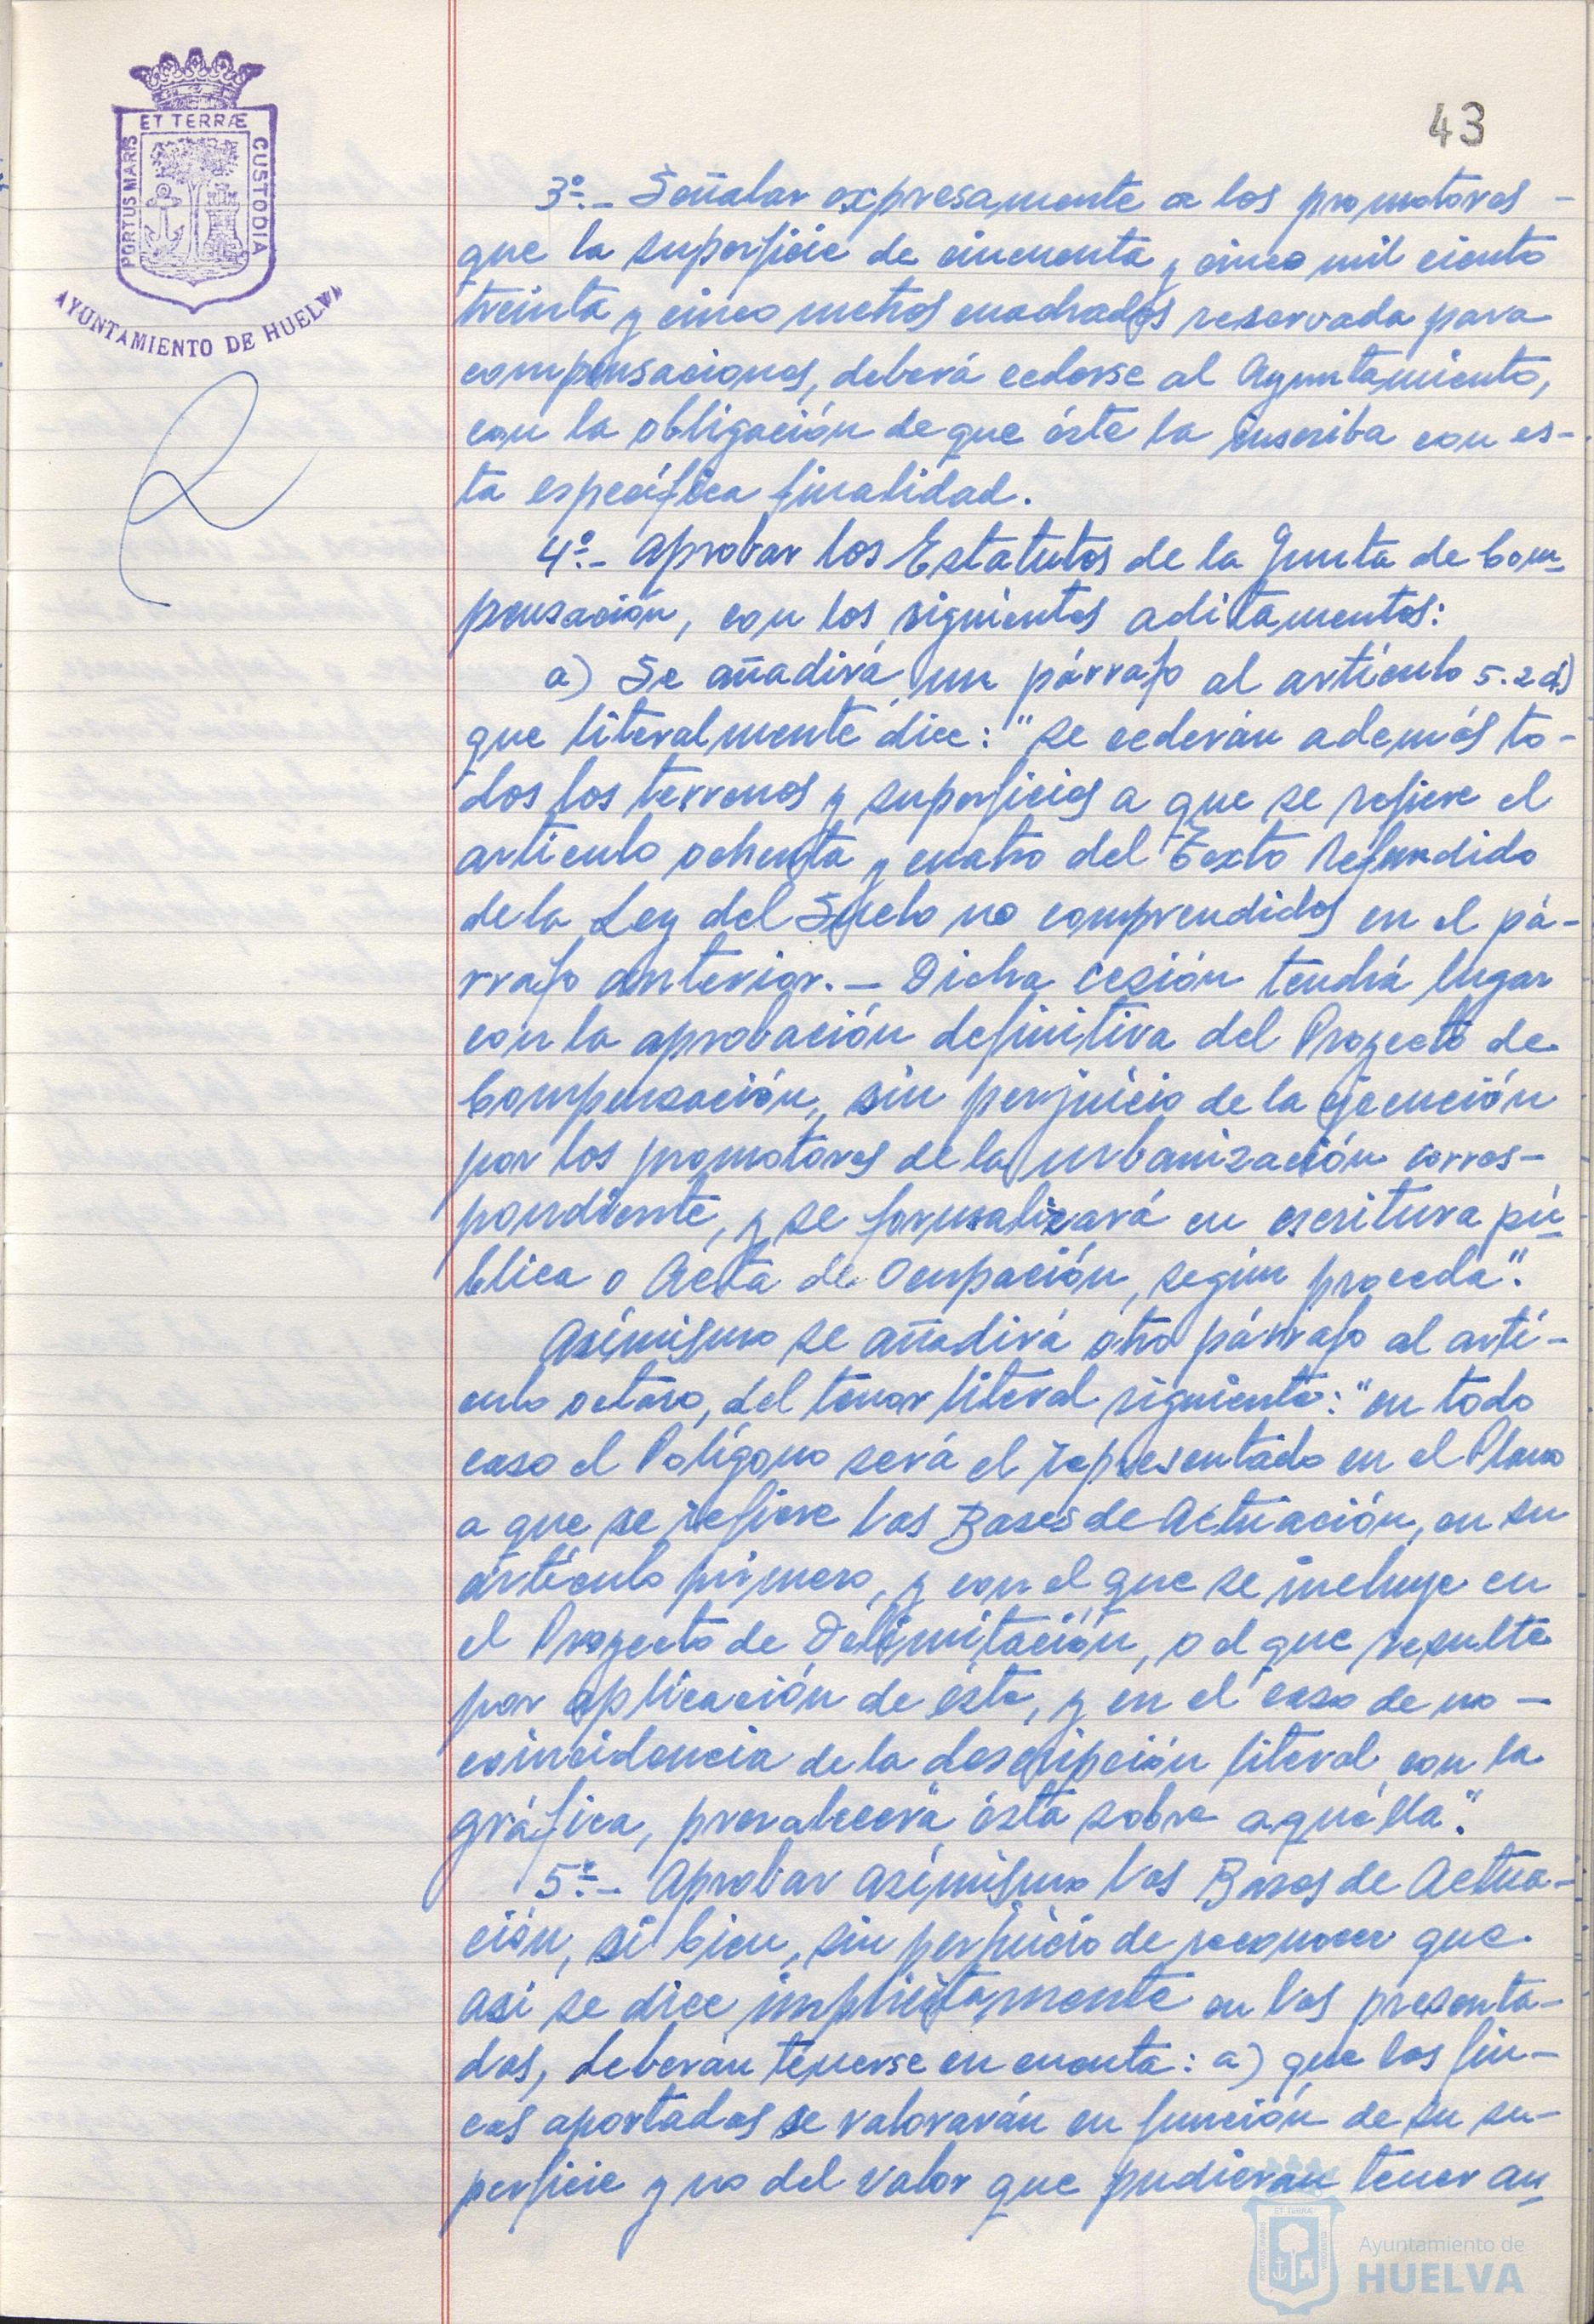 43
ET TERRÆ
PORTUS MARIS
CUSTODIA
AYUNTAMIENTO DE HUELVA
3º.- Señalar expresamente a los promotores -
que la superficie de cincuenta y cinco mil ciento
treinta y cinco metros cuadrados reservada para
compensaciones, deberá cederse al Ayuntamiento,
con la obligación de que éste la inscriba con es-
ta específica finalidad.
4º.- Aprobar los Estatutos de la Junta de Com-
pensación, con los siguientes aditamentos:
a) Se añadirá un párrafo al artículo 5.2 d)
que literalmente dice: "se cederán además to-
dos los terrenos y superficies a que se refiere el
artículo ochenta y cuatro del Texto Refundido
de la Ley del Suelo no comprendidos en el pá-
rrafo anterior.- Dicha cesión tendrá lugar
con la aprobación definitiva del Proyecto de
Compensación, sin perjuicio de la ejecución
por los promotores de la urbanización corres-
pondiente, y se formalizará en escritura pú-
blica o Acta de Ocupación, según proceda".
Asímismo se añadirá otro párrafo al artí-
culo octavo, del tenor literal siguiente: "en todo
caso el Polígono será el representado en el Plano
a que se refiere las Bases de Actuación, en su
artículo primero, y con el que se incluye en
el Proyecto de Delimitación, o el que resulte
por aplicación de éste, y en el caso de no -
coincidencia de la descripción literal con la
gráfica, prevalecerá ésta sobre aquélla".
5º.- Aprobar asímismo las Bases de Actua-
ción, si bien, sin perjuicio de reconocer que
así se dice implícitamente en las presenta-
das, deberán tenerse en cuenta: a) que las fin-
cas aportadas se valorarán en función de su su-
perficie y no del valor que pudieran tener an-
Ayuntamiento de
HUELVA